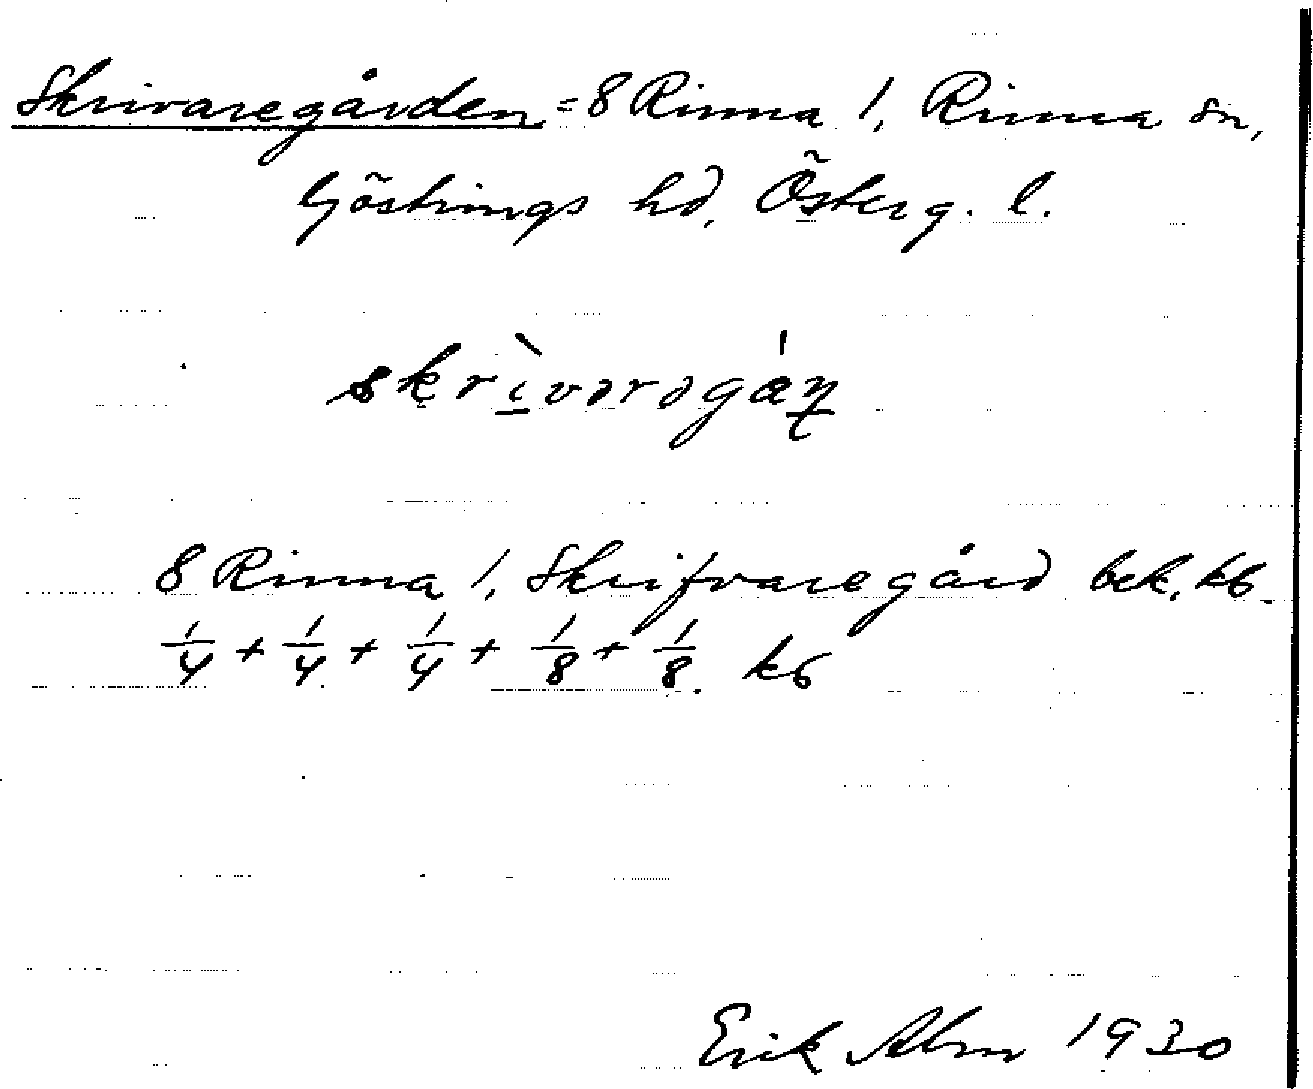 Skrivaregården = 8 Rinna 1, Rinna sn,
Göstrings hd, Österg. l.
skrìvərəgáɳ
8 Rinna 1, Skrifvaregård bek. kb.
1/4 + 1/4 + 1/4 + 1/8 + 1/8. kb
Erik Alm 1930